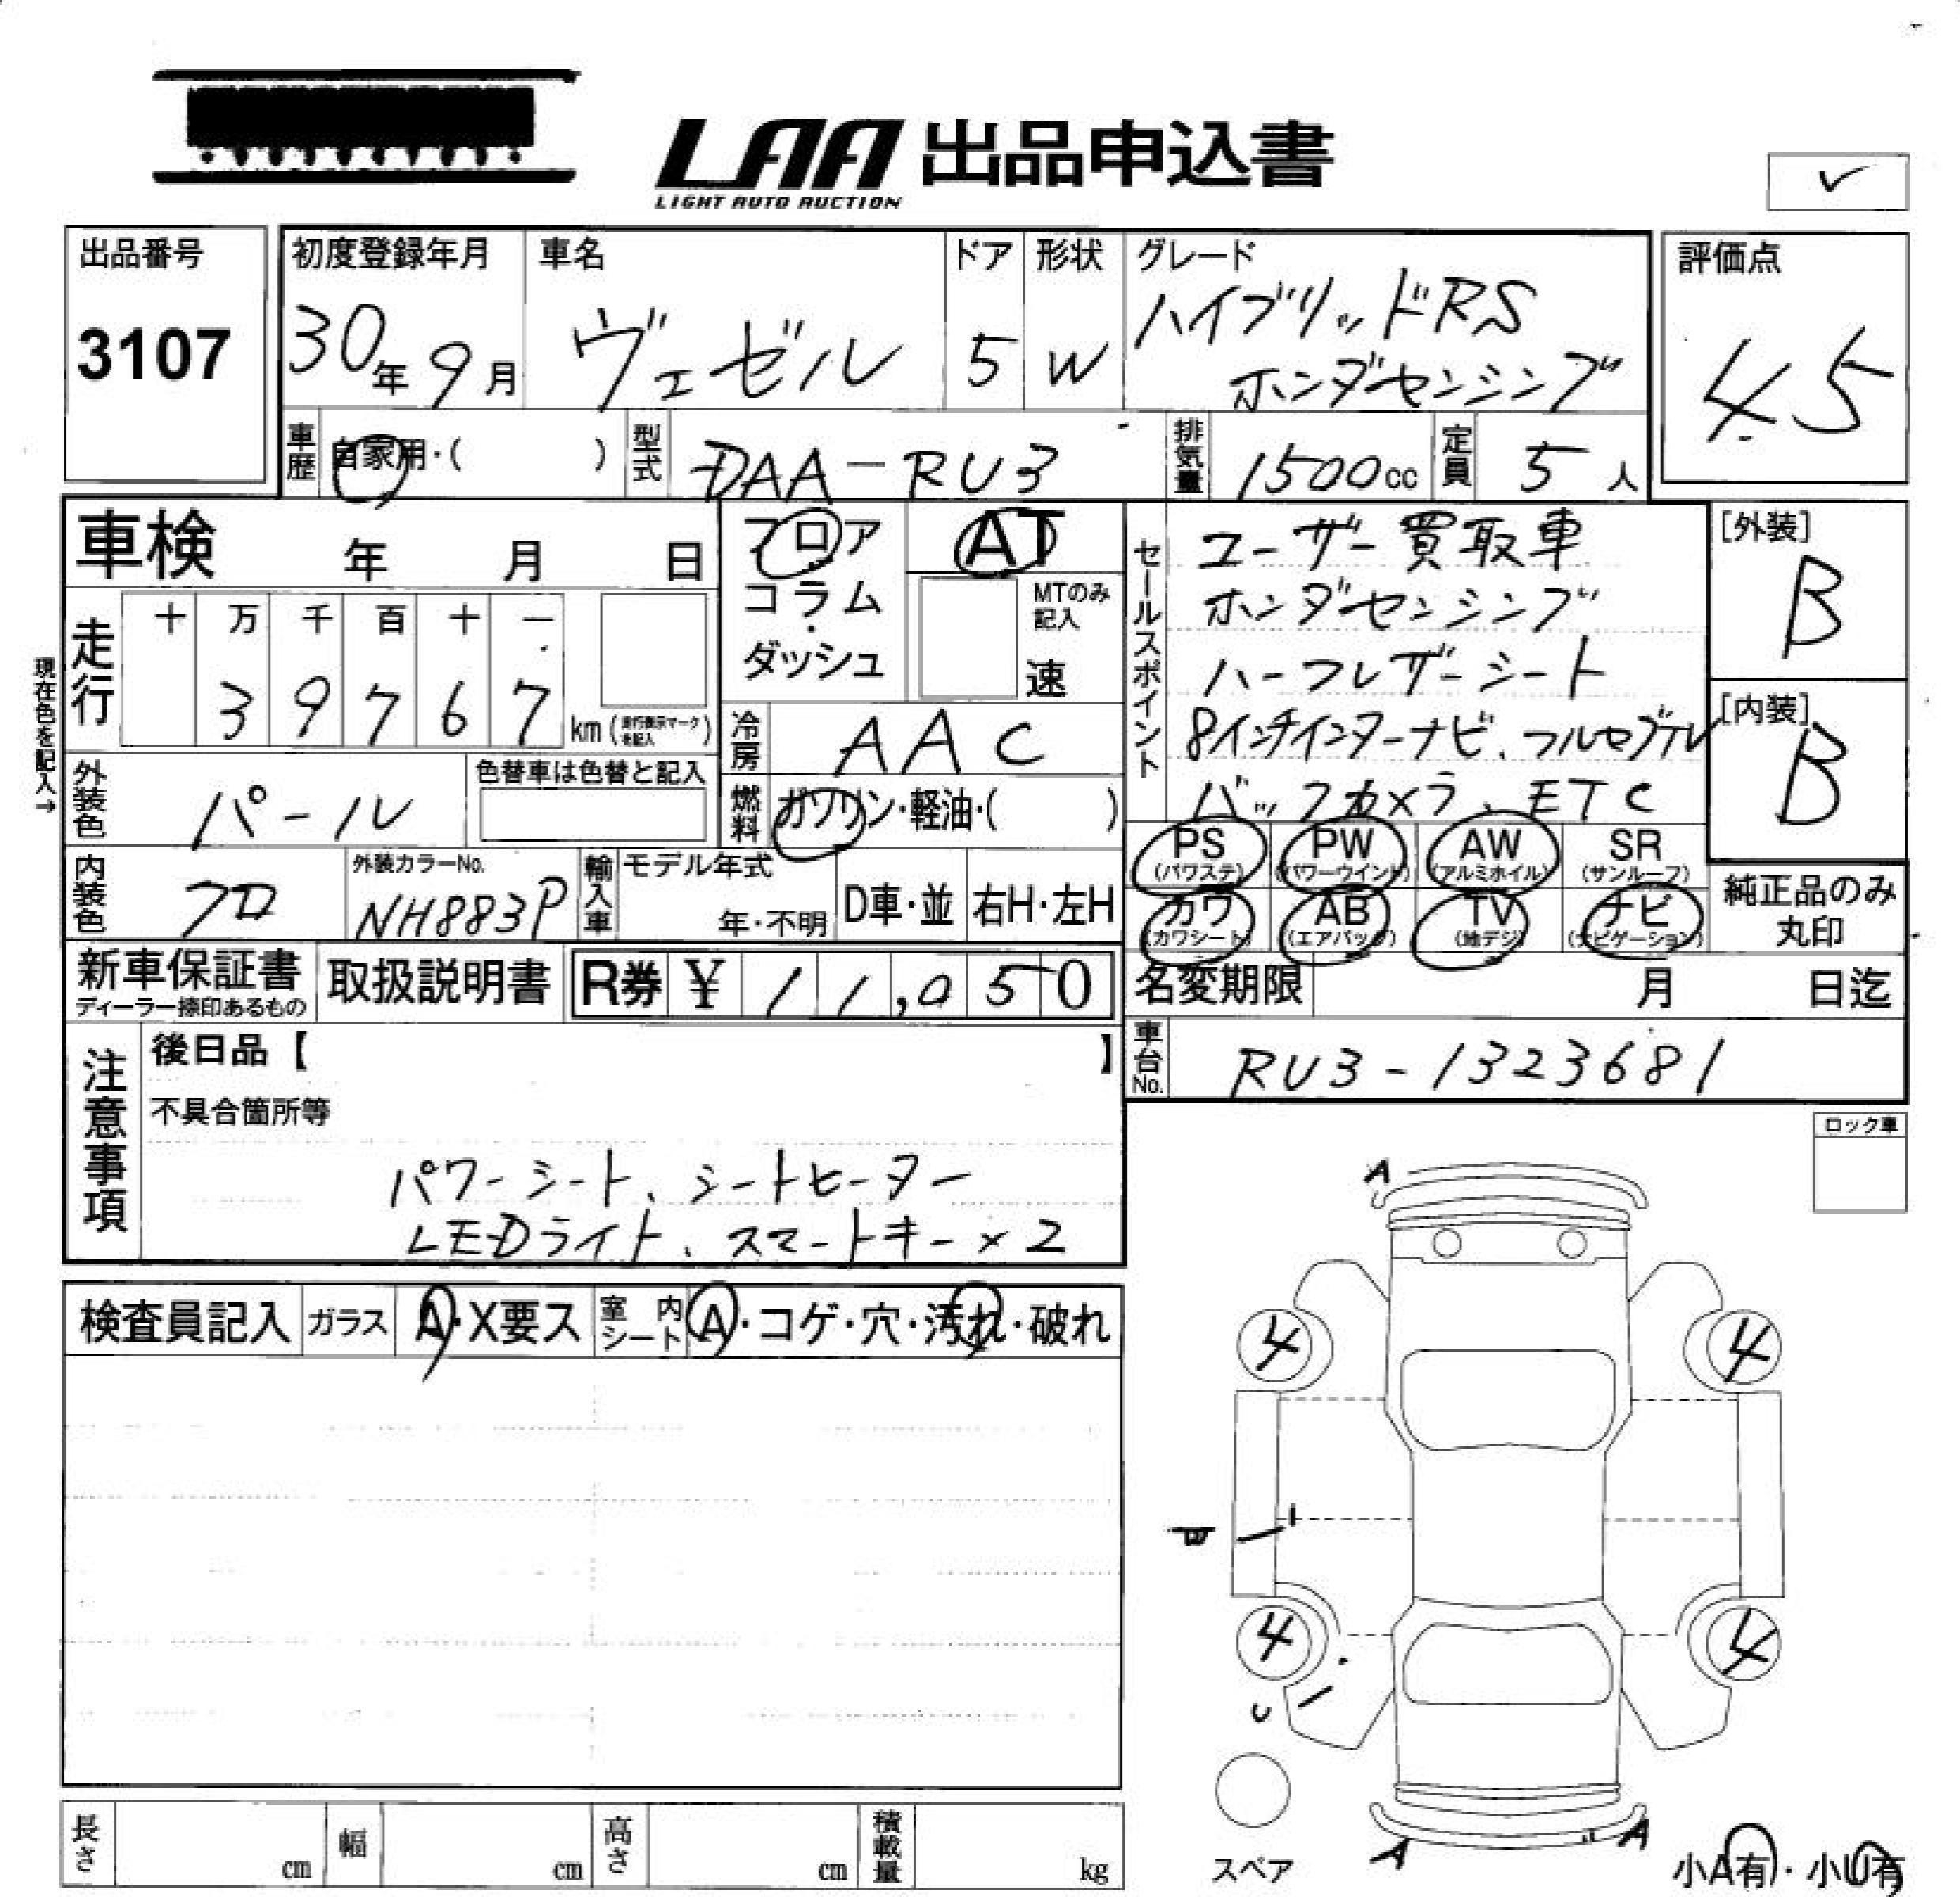 LAA 出品申込書
LIGHT AUTO AUCTION
✓
出品番号
3107
初度登録年月
30年9月
車名
ヴェゼル
ドア
5
形状
W
グレード
ハイブリッドRS
ホンダセンシング
評価点
4.5
車歴
自家用・( )
型式
DAA-RU3
排気量
1500cc
定員
5人
車検 年 月 日
フロア
コラム・
ダッシュ
AT
MTのみ
記入
速
セールスポイント
ユーザー買取車
ホンダセンシング
ハーフレザーシート
8インチインターナビ、フルセグTV
バックカメラ、ETC
[外装]
B
[内装]
B
現在色を記入→
走行
十 万 千 百 十 一
3 9 7 6 7
km (走行表示マークを記入)
冷房
AAC
外装色
パール
色替車は色替と記入
燃料
ガソリン・軽油・( )
PS (パワステ)
PW (パワーウインド)
AW (アルミホイル)
SR (サンルーフ)
カワ (カワシート)
AB (エアバッグ)
TV (地デジ)
ナビ (ナビゲーション)
純正品のみ
丸印
内装色
クロ
外装カラーNo.
NH883P
輸入車
モデル年式
年・不明
D車・並
右H・左H
新車保証書
ディーラー捺印あるもの
取扱説明書
R券 ¥ 11,050
名変期限 月 日迄
車台No.
RU3-1323681
注意事項
後日品【 】
不具合箇所等
パワーシート、シートヒーター
LEDライト、スマートキー×2
ロック車
検査員記入
ガラス
A・X要ス
室内シート
A・コゲ・穴・汚れ・破れ
A
4
4
4
4
U
A
A
スペア
小A有・小U有
長さ cm
幅 cm
高さ cm
積載量 kg